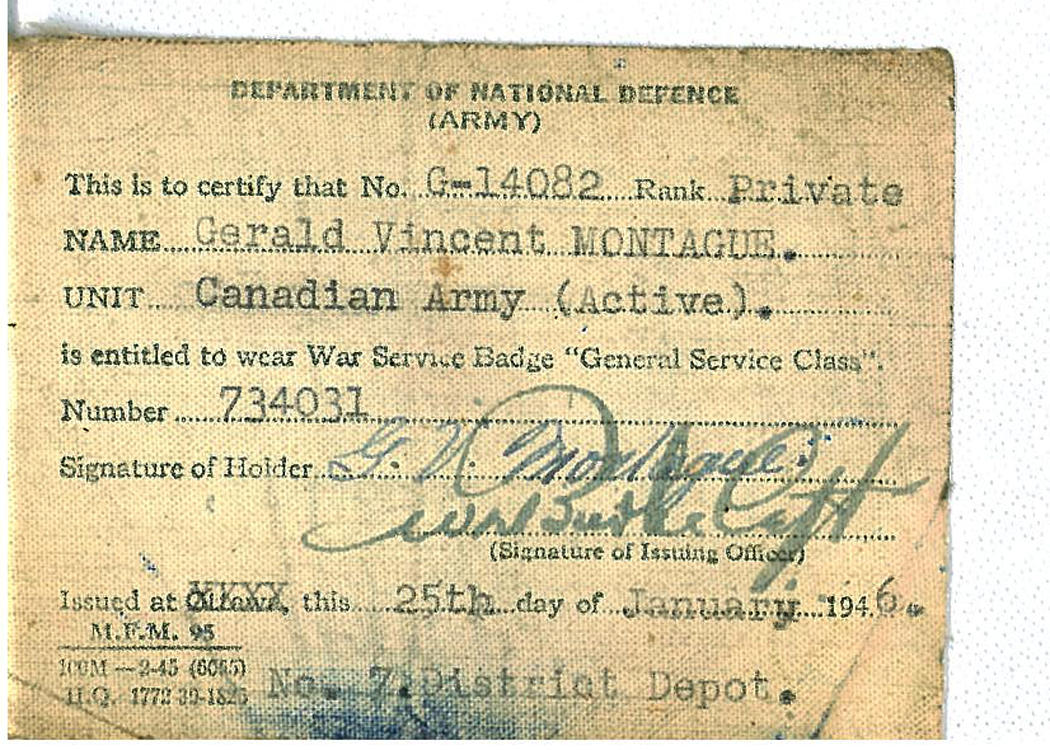 DEPARTMENT OF NATIONAL DEFENCE
(ARMY)
This is to certify that No. G-14082 Rank Private
NAME Gerald Vincent MONTAGUE.
UNIT Canadian Army (Active).
is entitled to wear War Service Badge "General Service Class".
Number 734031
Signature of Holder G. V. Montague.
Capt
(Signature of Issuing Officer)
Issued at Ottawa, this 25th day of January 1946.
M.F.M. 95
100M—2-45 (6065)
H.Q. 1772-39-1825
No. 7. District Depot.